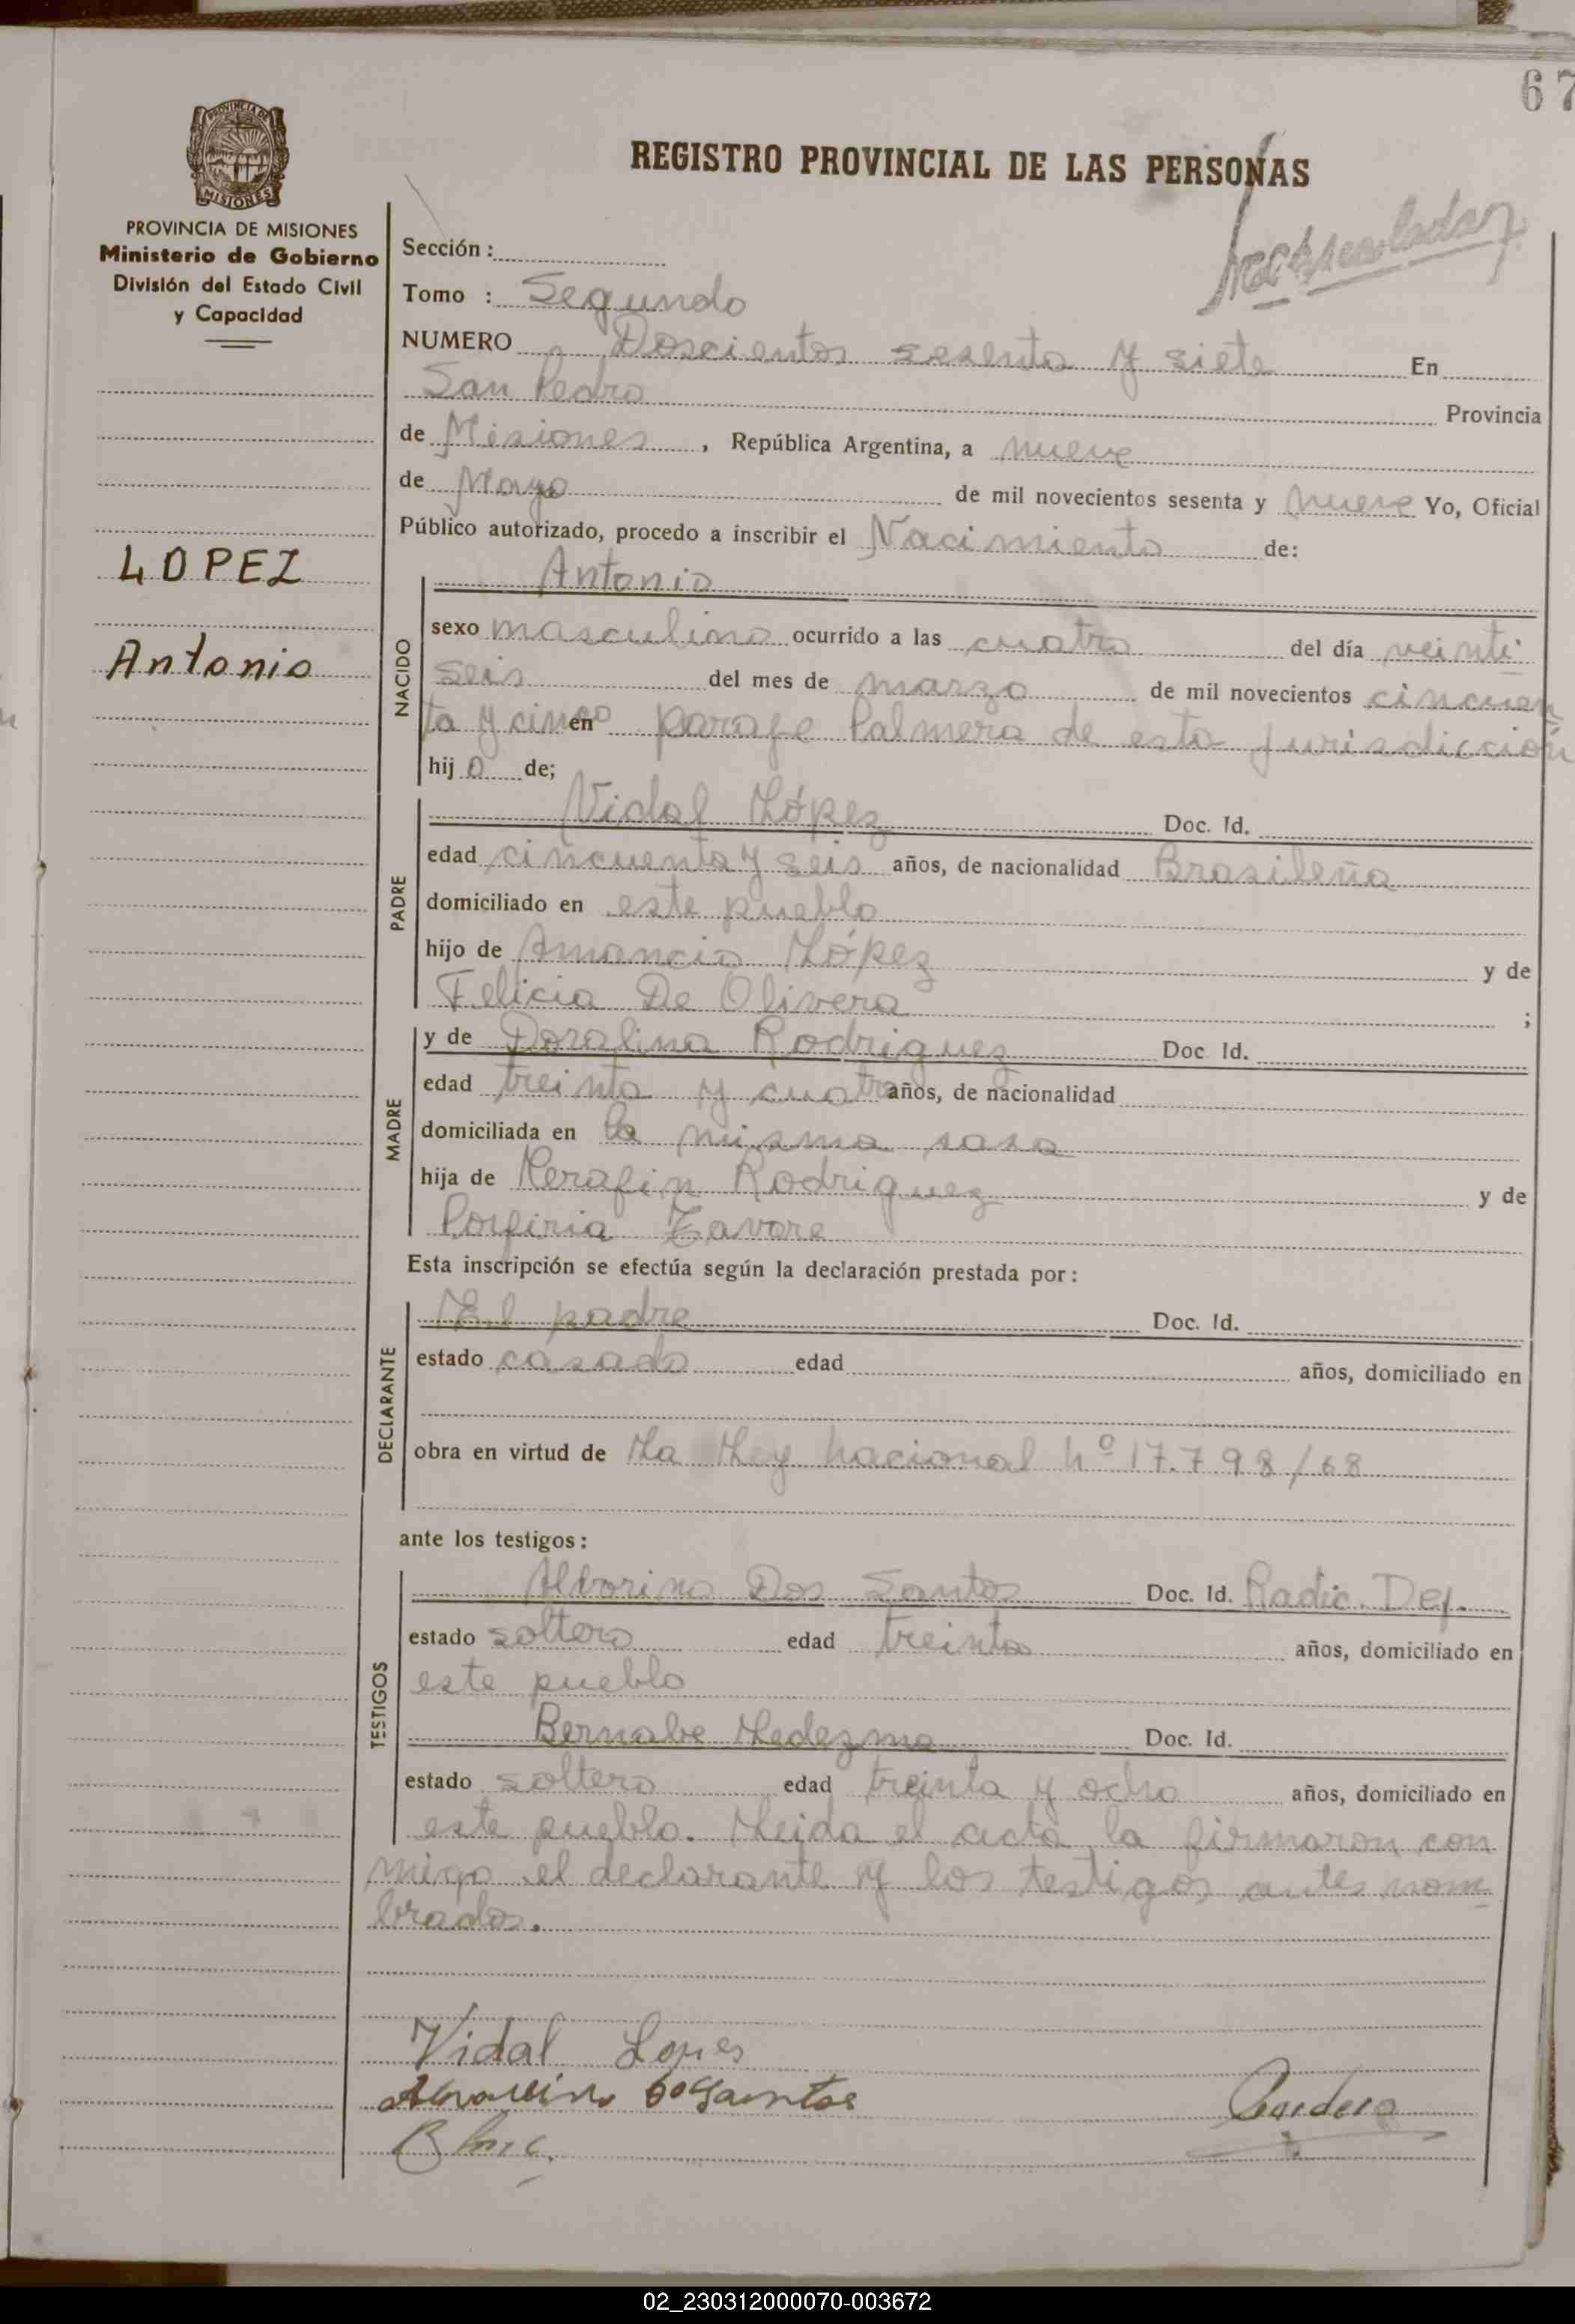 67
REGISTRO PROVINCIAL DE LAS PERSONAS
PROVINCIA DE MISIONES
Ministerio de Gobierno
División del Estado Civil
y Capacidad
LOPEZ
Antonio
Sección :
Tomo : Segundo
NUMERO Doscientos sesenta y siete En
San Pedro Provincia
de Misiones, República Argentina, a nueve
de Mayo de mil novecientos sesenta y nueve Yo, Oficial
Público autorizado, procedo a inscribir el Nacimiento de:
Antonio
NACIDO
sexo masculino ocurrido a las cuatro del día veinti
seis del mes de marzo de mil novecientos cincuen
ta y cinco en paraje Palmera de esta jurisdicción
hijo de;
PADRE
Vidal López Doc. Id.
edad cincuenta y seis años, de nacionalidad Brasileña
domiciliado en este pueblo
hijo de Amancio López y de
Felicia De Olivera ;
MADRE
y de Doralina Rodriguez Doc. Id.
edad treinta y cuatro años, de nacionalidad
domiciliada en la misma casa
hija de Serafin Rodriguez y de
Porfiria
Esta inscripción se efectúa según la declaración prestada por :
DECLARANTE
El padre Doc. Id.
estado casado edad años, domiciliado en
obra en virtud de La Ley nacional nº 17.798/68
ante los testigos :
TESTIGOS
Dos Santos Doc. Id. Radic. Def.
estado soltero edad treinta años, domiciliado en
este pueblo
Bernabe Ledezma Doc. Id.
estado soltero edad treinta y ocho años, domiciliado en
este pueblo. Leida el acta la firmaron con
migo el declarante y los testigos antes nom
brados.
Vidal Lopes
02_230312000070-003672